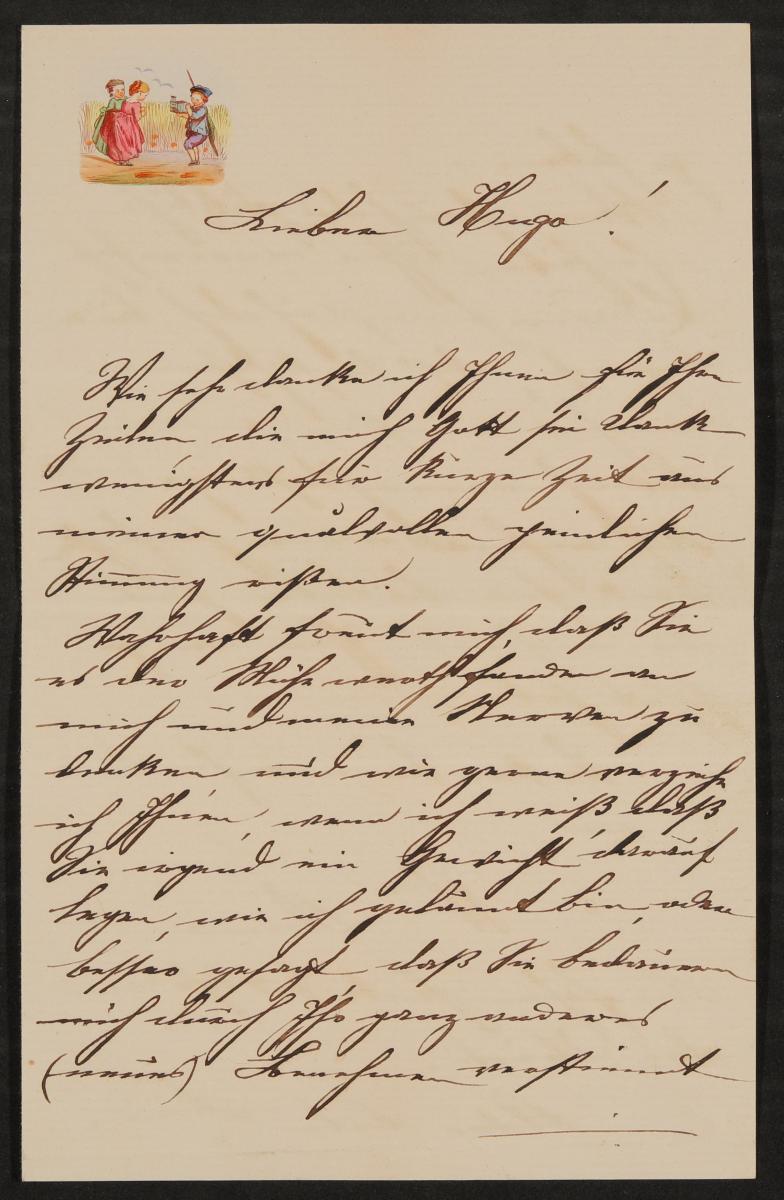 Lieber Hugo!
Wie sehr danke ich Ihnen für Ihre
Zeilen die mich Gott sei Dank
wenigstens für kurze Zeit aus
meiner qualvollen peinlichen
Stimmung rißen.
Wahrhaft freut mich, daß Sie
es der Mühe werth fanden an
mich und meine Nerven zu
denken und wie gerne verzeihe
ich Ihnen, wenn ich weiß daß
Sie irgend ein Gewicht darauf
legen, wie ich gelaunt bin, oder
besser gesagt, daß Sie bedauern
mich durch Ihr ganz anderes
(neues) Benehmen verstimmt